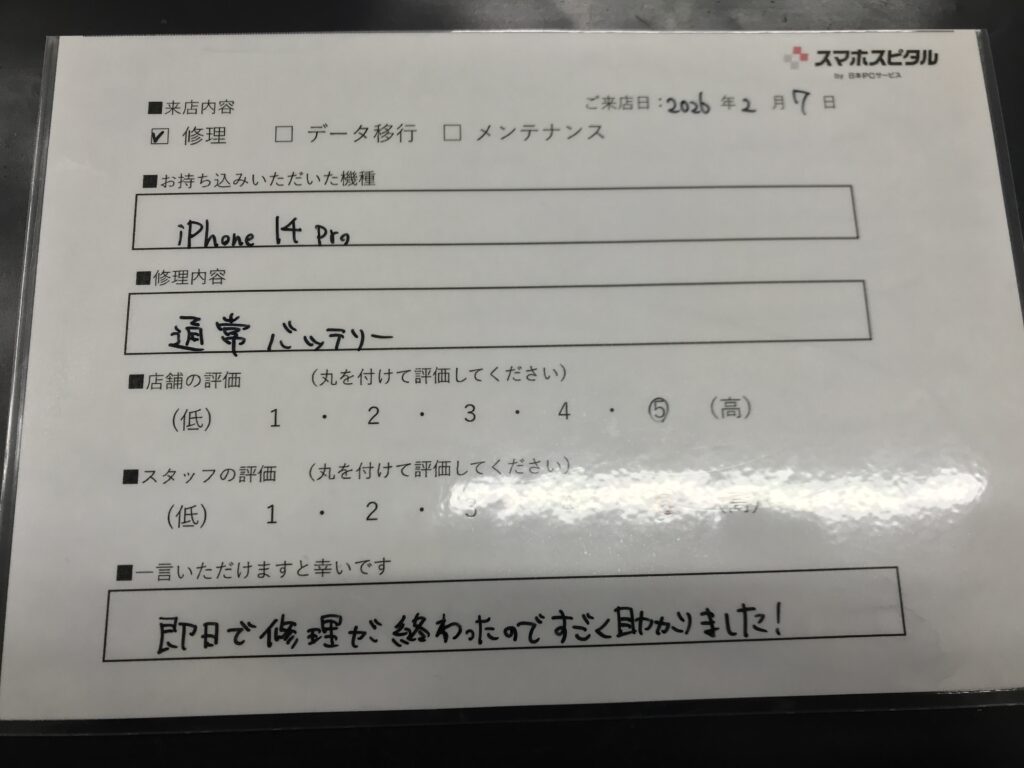 スマホスピタル
by 日本PCサービス
ご来店日：2026 年 2 月 7 日
■来店内容
☑ 修理 □ データ移行 □ メンテナンス
■お持ち込みいただいた機種
iPhone 14 Pro
■修理内容
通常バッテリー
■店舗の評価 （丸を付けて評価してください）
（低） 1 ・ 2 ・ 3 ・ 4 ・ ⑤ （高）
■スタッフの評価 （丸を付けて評価してください）
（低） 1 ・ 2 ・ 3 （高）
■一言いただけますと幸いです
即日で修理が終わったのですごく助かりました！